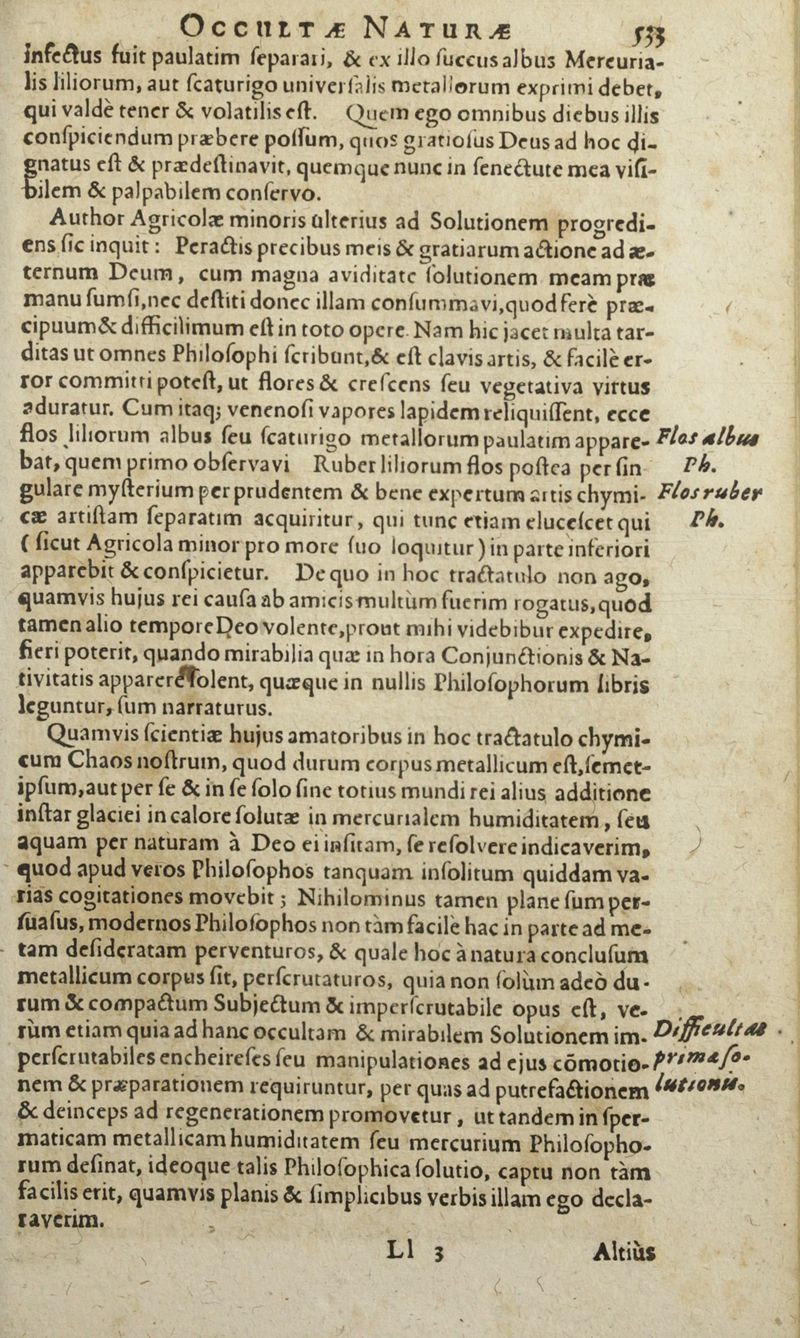 OCCULTÆ NATURÆ 533
infectus fuit paulatim ſeparari, & ex illo ſuccus albus Mercuria-
lis liliorum, aut ſcaturigo univerſalis metallorum exprimi debet,
qui valdè tener & volatilis eſt. Quem ego omnibus diebus illis
conſpiciendum præbere poſſum, quos gratioſus Deus ad hoc di-
gnatus eſt & prædeſtinavit, quemque nunc in ſenectute mea viſi-
bilem & palpabilem conſervo.
Author Agricolæ minoris ulterius ad Solutionem progredi-
ens ſic inquit: Peractis precibus meis & gratiarum actione ad æ-
ternum Deum, cum magna aviditate ſolutionem meam præ
manu ſumſi, nec deſtiti donec illam conſummavi, quod ferè præ-
cipuum & difficilimum eſt in toto opere. Nam hic jacet multa tar-
ditas ut omnes Philoſophi ſcribunt, & eſt clavis artis, & facilè er-
ror committi poteſt, ut flores & creſcens ſeu vegetativa virtus
aduratur. Cum itaq; venenoſi vapores lapidem reliquiſſent, ecce
flos liliorum albus ſeu ſcaturigo metallorum paulatim appare- Flos albus
bat, quem primo obſervavi Ruber liliorum flos poſtea per ſin Ph.
gulare myſterium per prudentem & bene expertum artis chymi- Flos ruber
cæ artiſtam ſeparatim acquiritur, qui tunc etiam eluceſcet qui Ph.
( ſicut Agricola minor pro more ſuo loquitur ) in parte inferiori
apparebit & conſpicietur. De quo in hoc tractatulo non ago,
quamvis hujus rei cauſa ab amicis multùm fuerim rogatus, quod
tamen alio tempore Deo volente, prout mihi videbibur expedire,
fieri poterit, quando mirabilia quæ in hora Conjunctionis & Na-
tivitatis apparere ſolent, quæque in nullis Philoſophorum libris
leguntur, ſum narraturus.
Quamvis ſcientiæ hujus amatoribus in hoc tractatulo chymi-
cum Chaos noſtrum, quod durum corpus metallicum eſt, ſemet-
ipſum, aut per ſe & in ſe ſolo ſine totius mundi rei alius additione
inſtar glaciei in calore ſolutæ in mercurialem humiditatem, ſeu
aquam per naturam à Deo ei inſitam, ſe reſolvere indicaverim,
quod apud veros Philoſophos tanquam inſolitum quiddam va-
rias cogitationes movebit; Nihilominus tamen plane ſum per-
ſuaſus, modernos Philoſophos non tàm facilè hac in parte ad me-
tam deſideratam perventuros, & quale hoc à natura concluſum
metallicum corpus ſit, perſcrutaturos, quia non ſolùm adeò du-
rum & compactum Subjectum & imperſcrutabile opus eſt, ve-
rùm etiam quia ad hanc occultam & mirabilem Solutionem im- Difficultas
perſcrutabiles encheireſes ſeu manipulationes ad ejus cõmotio- primæ ſo-
nem & præparationem requiruntur, per quas ad putrefactionem lutionis.
& deinceps ad regenerationem promovetur, ut tandem in ſper-
maticam metallicam humiditatem ſeu mercurium Philoſopho-
rum deſinat, ideoque talis Philoſophica ſolutio, captu non tàm
facilis erit, quamvis planis & ſimplicibus verbis illam ego decla-
raverim.
Ll 3 Altiùs